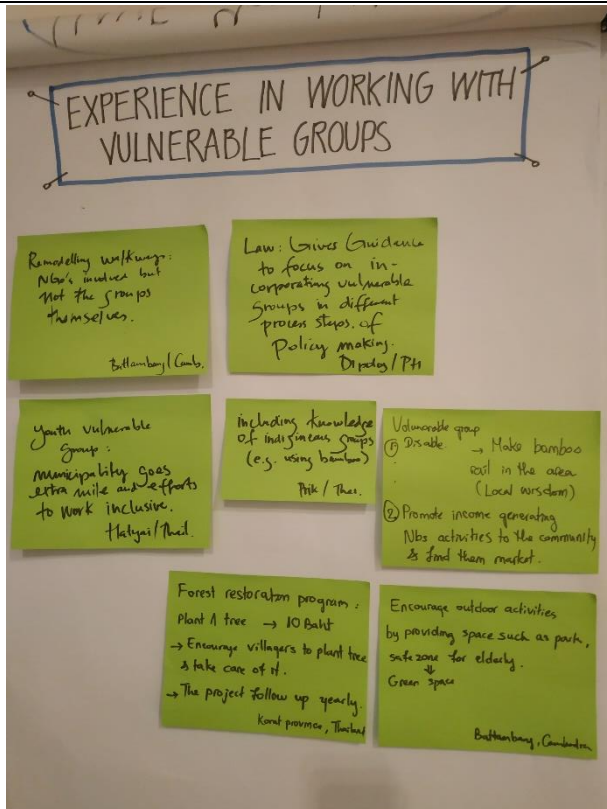 EXPERIENCE IN WORKING WITH
VULNERABLE GROUPS
Remodelling walkways:
NGO's involved but
not the groups
themselves.
Battambang/Camb.
Law: Gives Guidance
to focus on in-
corporating vulnerable
groups in different
process steps of
Policy making.
Dipolog/PH
Youth vulnerable
group:
municipality goes
extra mile and efforts
to work inclusive.
Hatyai/Thail.
including knowledge
of indigineous groups
(e.g. using bamboo)
Prik / Thai.
Volunarable group
① Disable → Make bamboo
rail in the area
(Local wisdom)
② Promote income generating
Nbs activities to the community
& find them market.
Forest restoration program:
Plant 1 tree → 10 Baht
→ Encourage villagers to plant tree
& take care of it.
→ The project follow up yearly.
Korat province, Thailand
Encourage outdoor activities
by providing space such as park,
safe zone for elderly.
⇓
Green space
Battambang, Cambodia